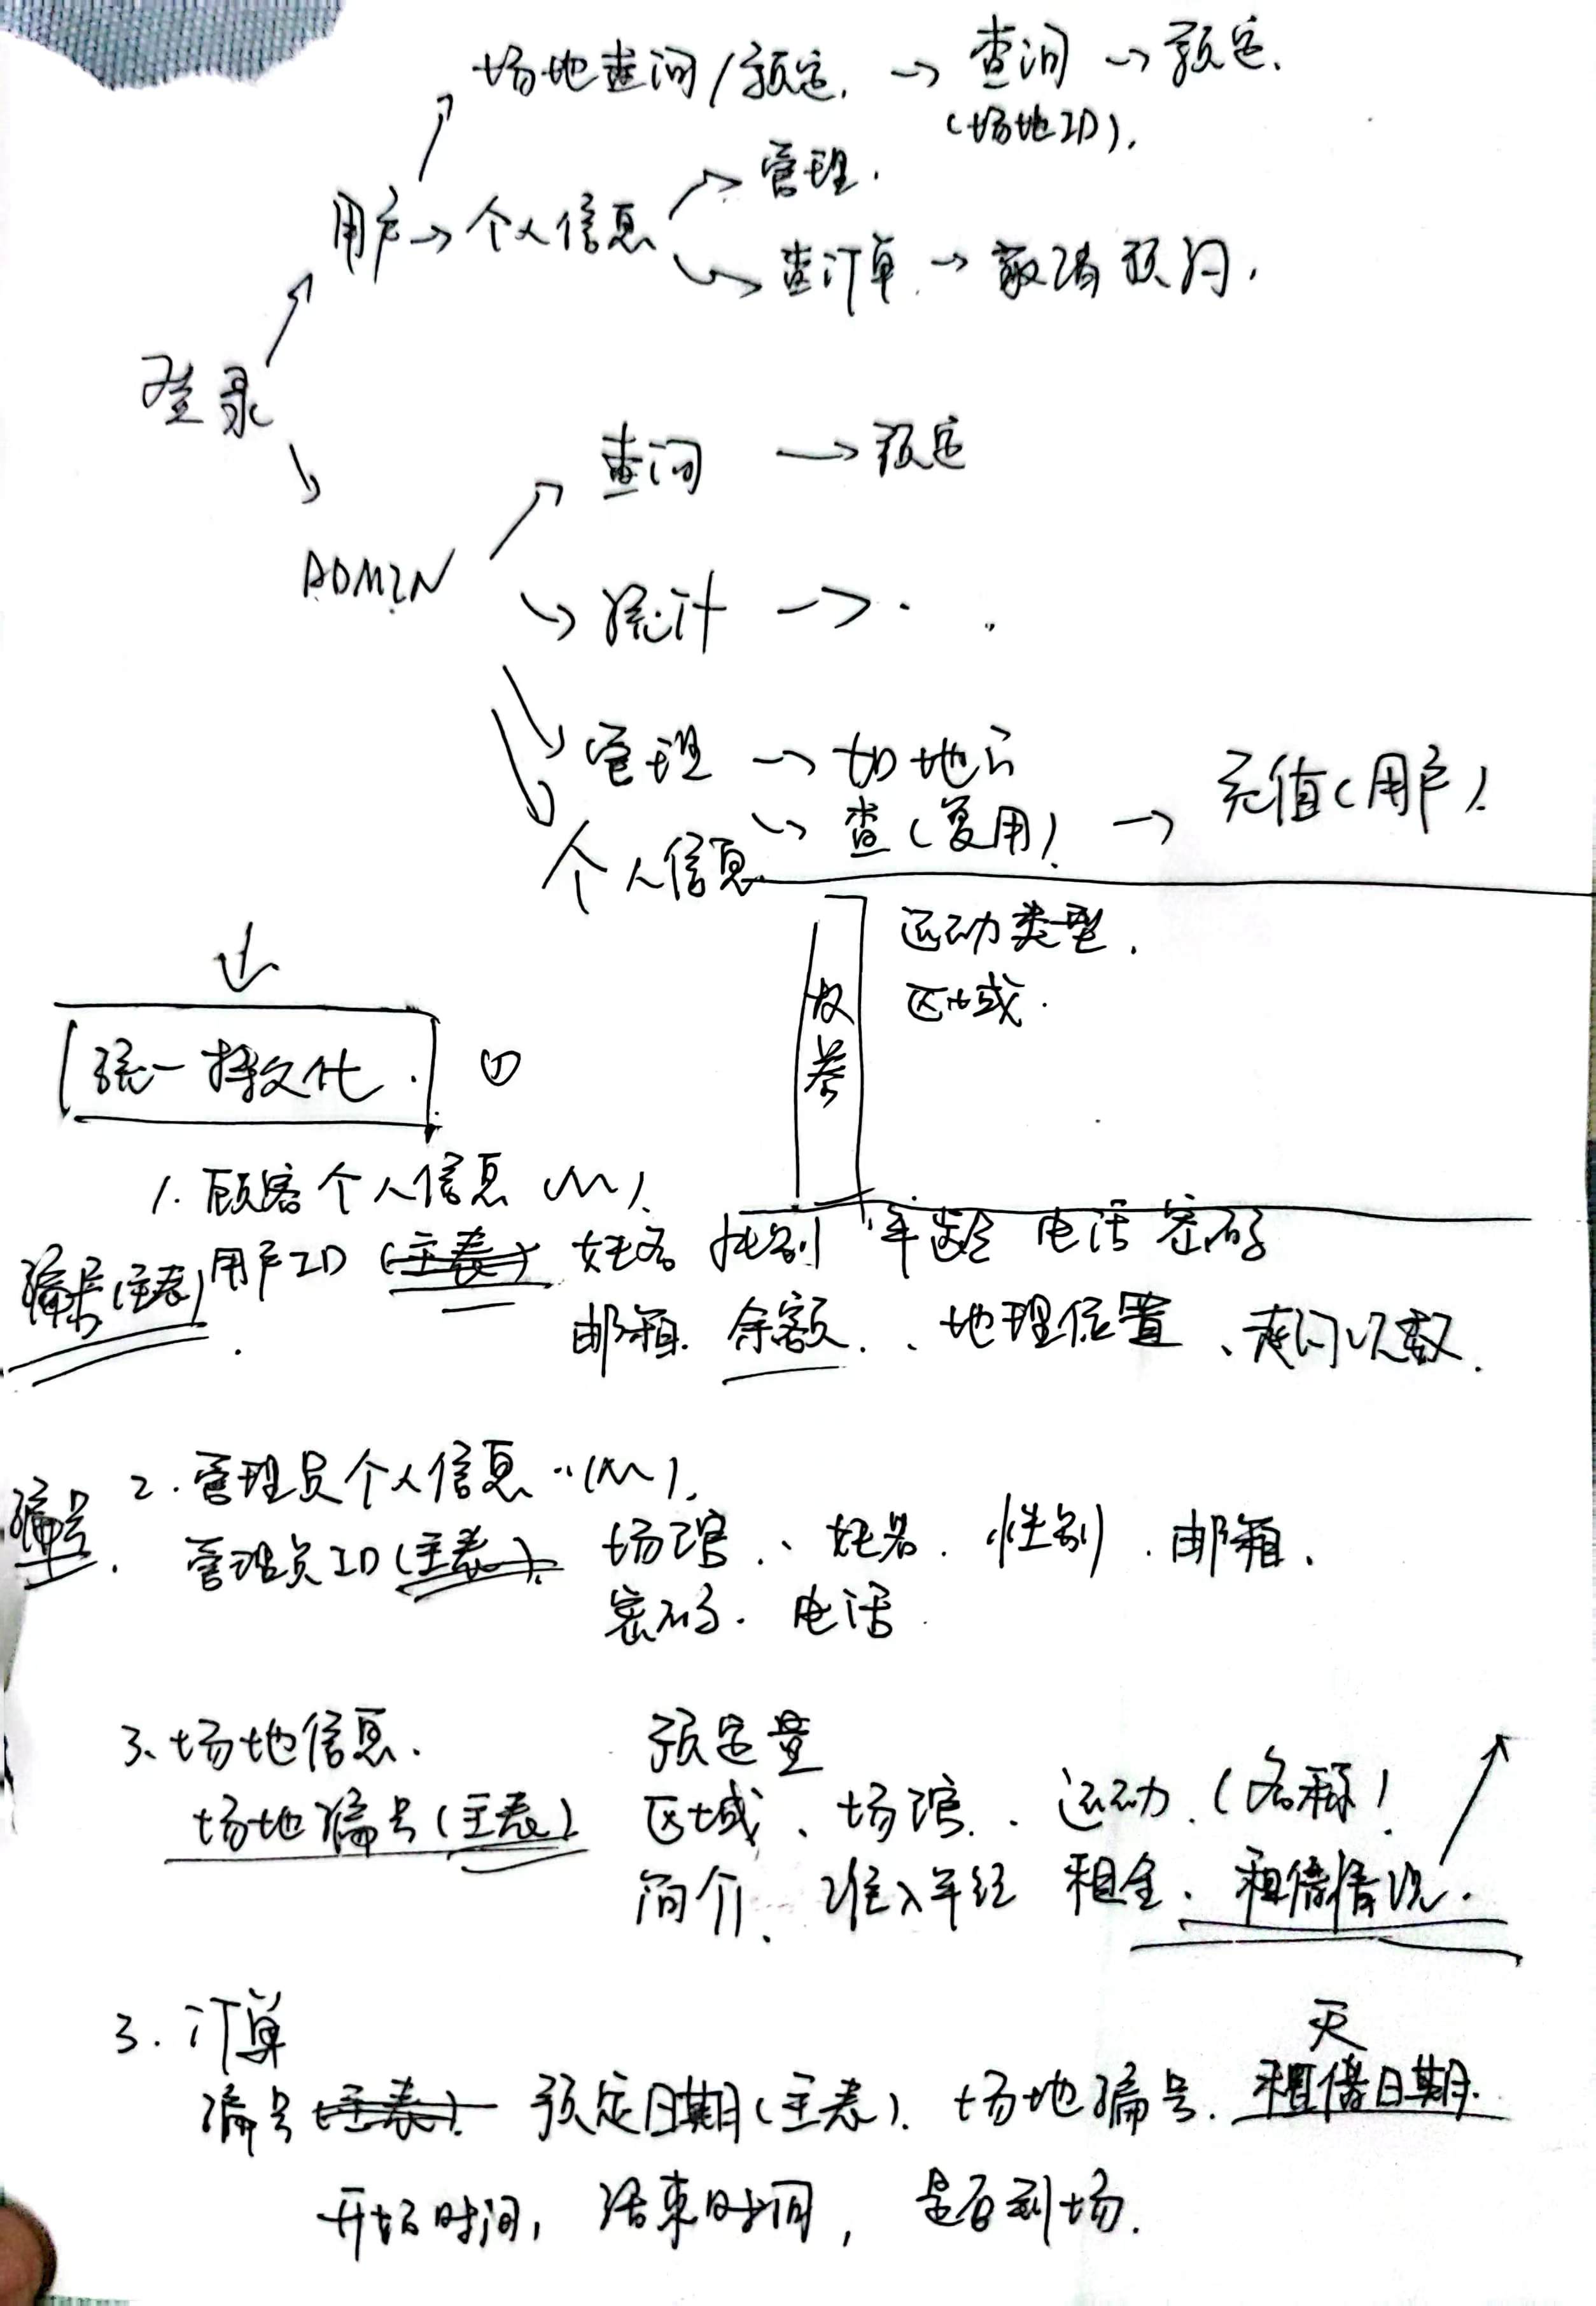 场地查询/预定. → 查询 → 预定.
(场地ID).
管理.
用户 → 个人信息
查订单 → 取消预约.
登录
查询 → 预定
ADMIN
统计 → .
管理 → 加地
查(复用) → 充值(用户)
个人信息
运动类型.
区域.
枚举
统一 持久化. ①
1. 顾客个人信息
编号(主表) 用户ID (主表) 姓名 性别 年龄 电话 密码
邮箱. 余额. 、地理位置、违约次数.
2. 管理员个人信息
编号. 管理员ID(主表) 场馆、姓名. 性别. 邮箱.
密码. 电话.
3、场地信息. 预定量
场地编号(主表) 区域、场馆、运动.(名称)
简介、准入年纪 租金. 租借情况.
3. 订单 天
编号(主表) 预定日期(主表). 场地编号. 租借日期.
开始时间, 结束时间, 是否到场.